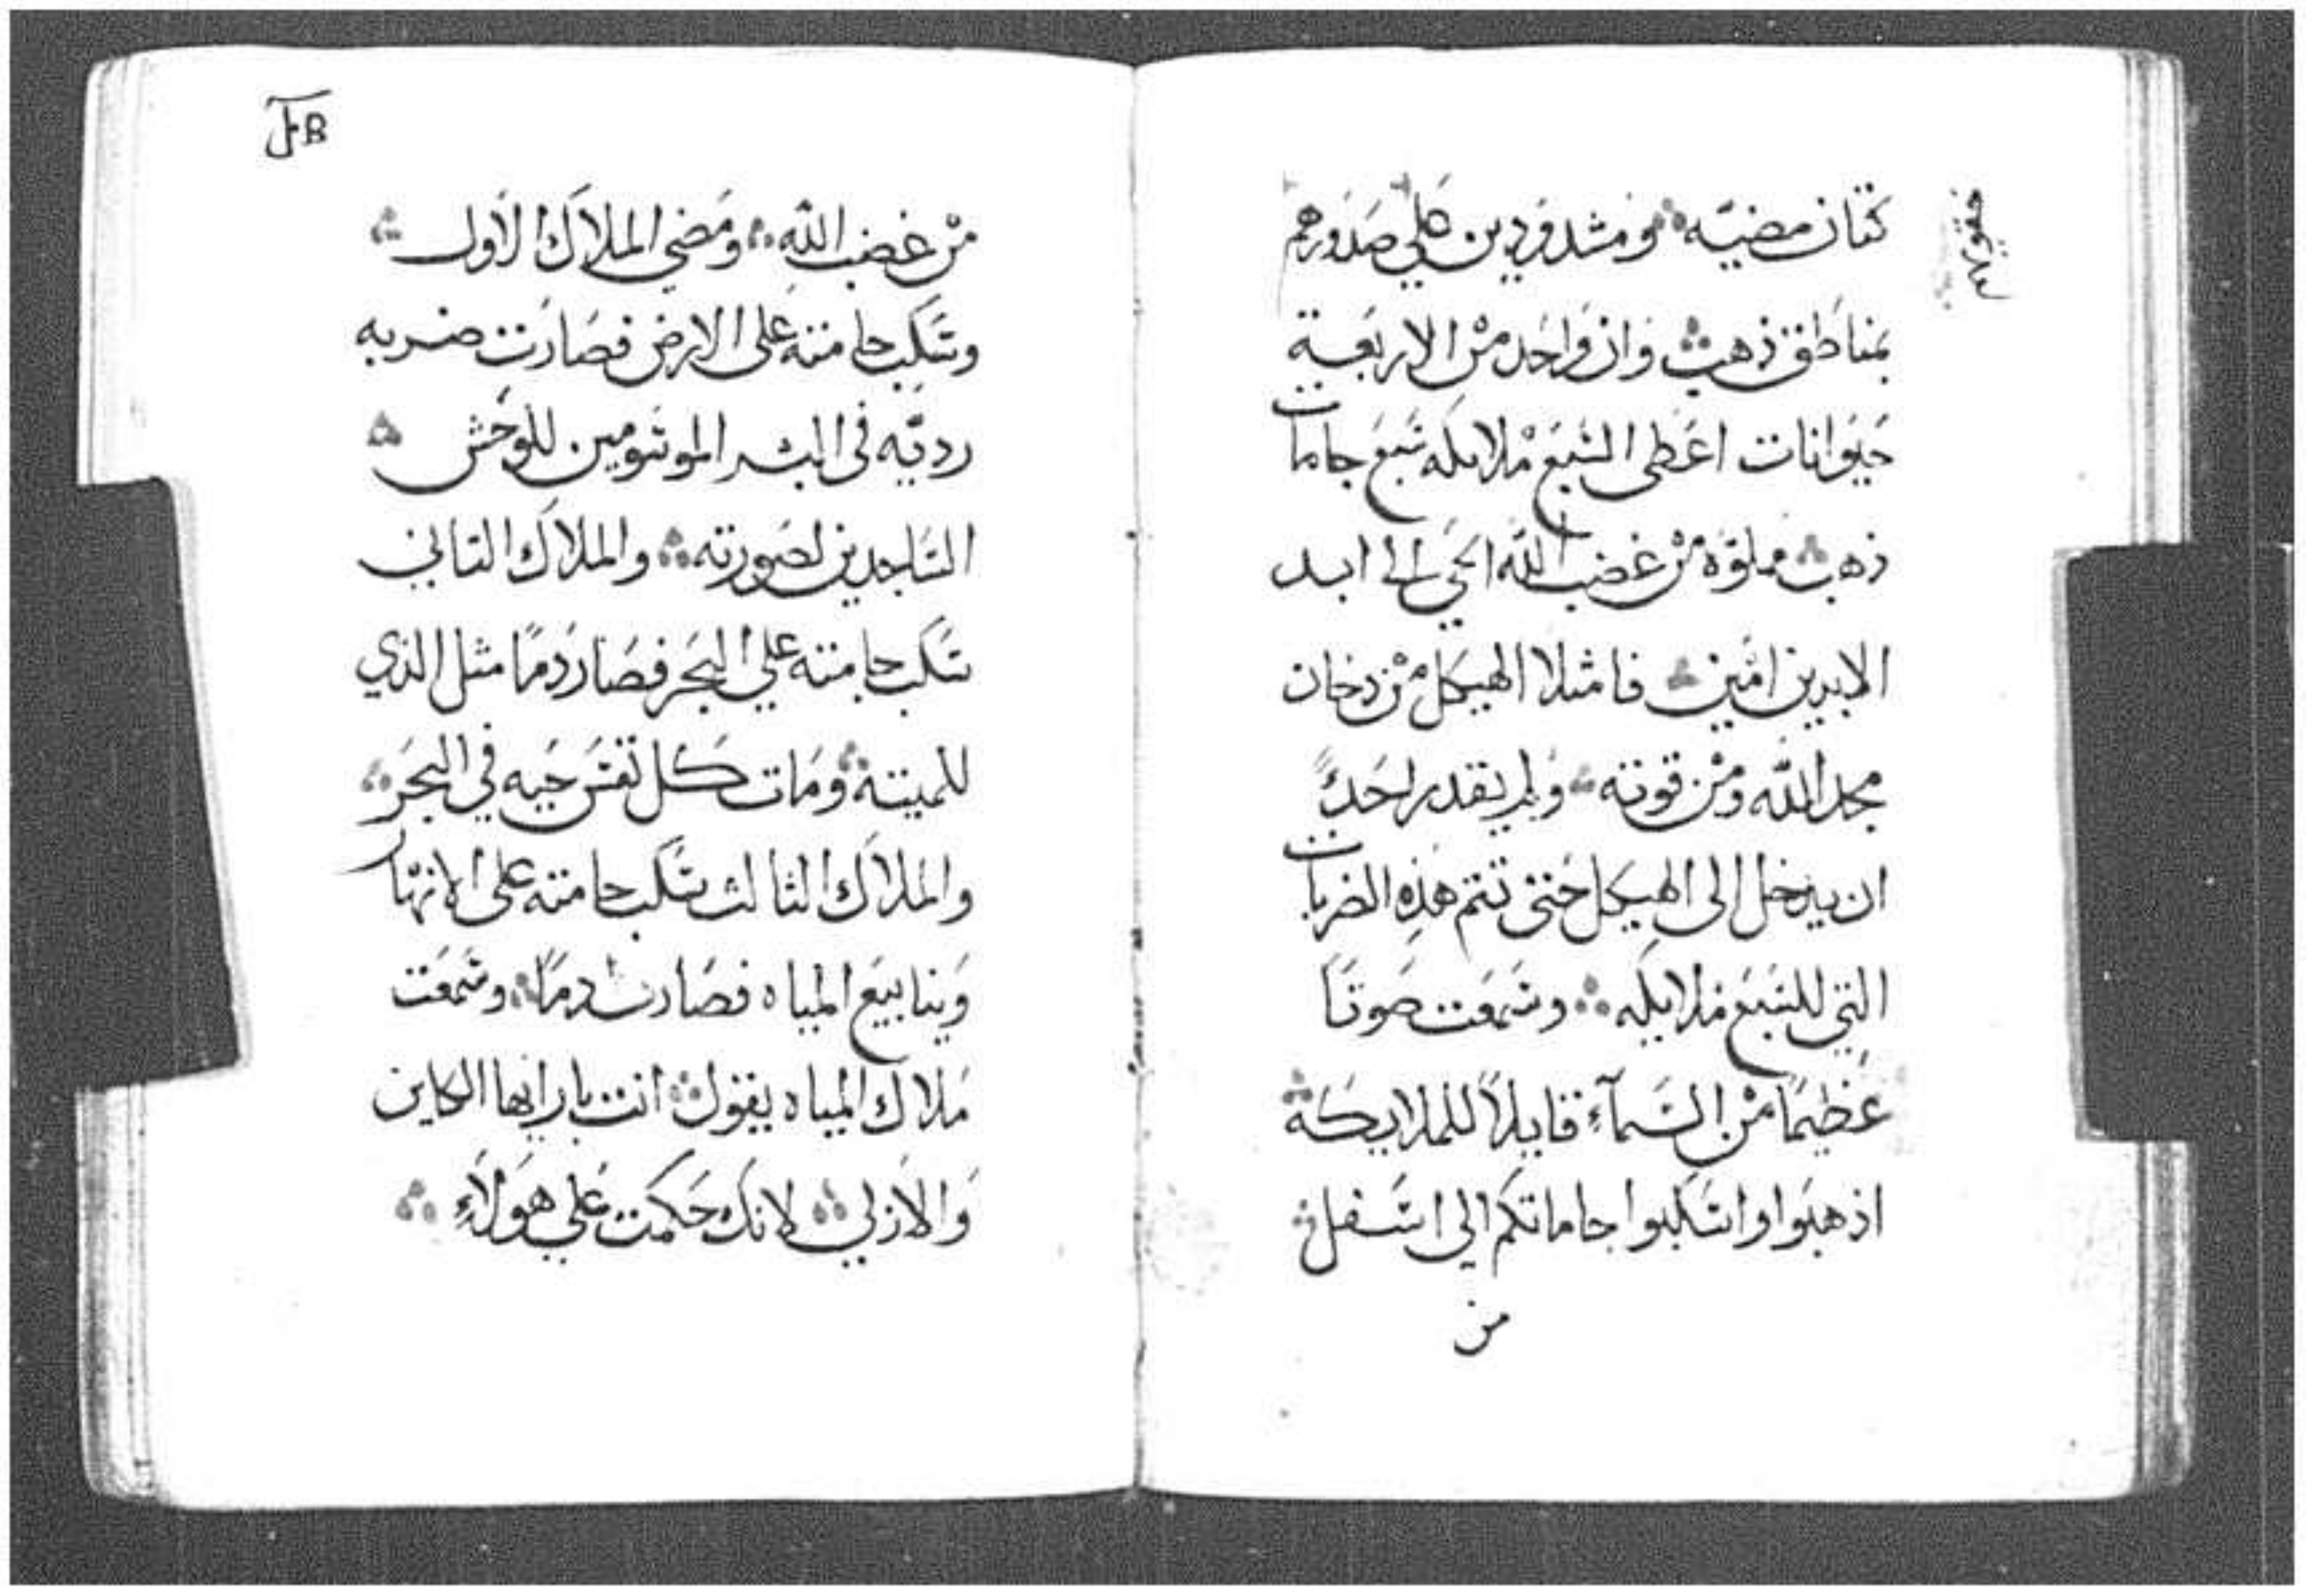 كتان مضيّه ومشدودين علي صدورهم
بمناطق ذهب وان واحد من الاربعة
حيوانات اعطى السبع ملايكه سبع جامات
ذهب مملوه من غضب الله الحي الي ابد
الابدين امين فامتلا الهيكل من دخان
مجد الله ومن قوته ولم يقدر احدً
ان يدخل الى الهيكل حتى تتم هذه الضربات
التي للسبع ملايكه وسمعت صوتاً
عظيماً من السمآء قايلاً للملايكة
اذهبوا واسكبوا جاماتكم الي اسفل
من
من غضب الله ومضي الملاك الاول
وسكب جامته على الارض فصارت ضربه
رديّه في البشر الموسومين للوحش
الساجدين لصورته والملاك التاني
سكب جامته علي البحر فصار دماً مثل الذي
للميتة ومات كل نفس حيه في البحر
والملاك الثالث سكب جامته على الانهار
وينابيع المياه فصارت دماً وسمعت
ملاك المياه يقول انت بار ايها الكاين
والازلي لانك حكمت علي هولآء